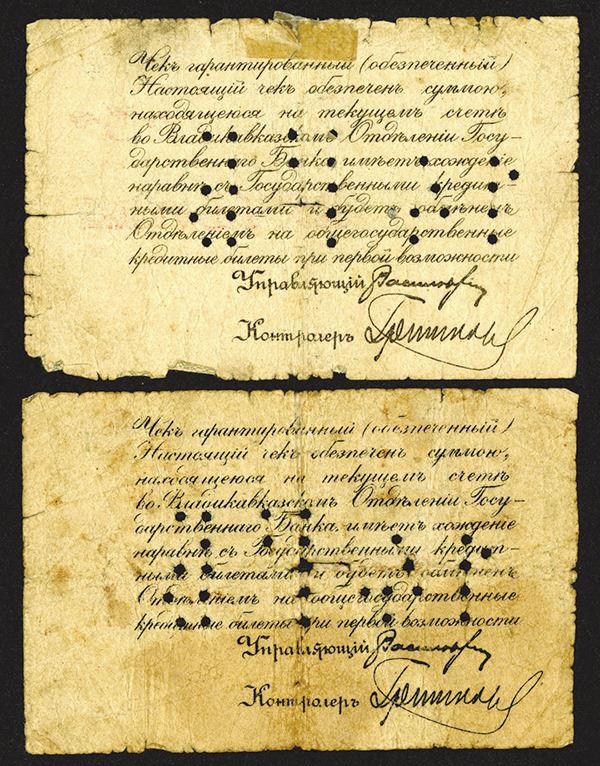 Чекъ гарантированный (обезпеченный)
Настоящій чек обезпечен суммою,
находящеюся на текущем счетѣ
во Владикавказском Отдѣленіи Госу-
дарственнаго Банка имѣетъ хожденіе
наравнѣ съ Государственными кредит-
ными билетами и будетъ обмѣнен
Отдѣленіем на общегосударственные
кредитные билеты при первой возможности
Управляющій
Контролеръ
Чекъ гарантированный (обезпеченный)
Настоящій чек обезпечен суммою,
находящеюся на текущем счетѣ
во Владикавказском Отдѣленіи Госу-
дарственнаго Банка имѣетъ хожденіе
наравнѣ съ Государственными кредит-
ными билетами и будетъ обмѣнен
Отдѣленіем на общегосударственные
кредитные билеты при первой возможности
Управляющій
Контролеръ